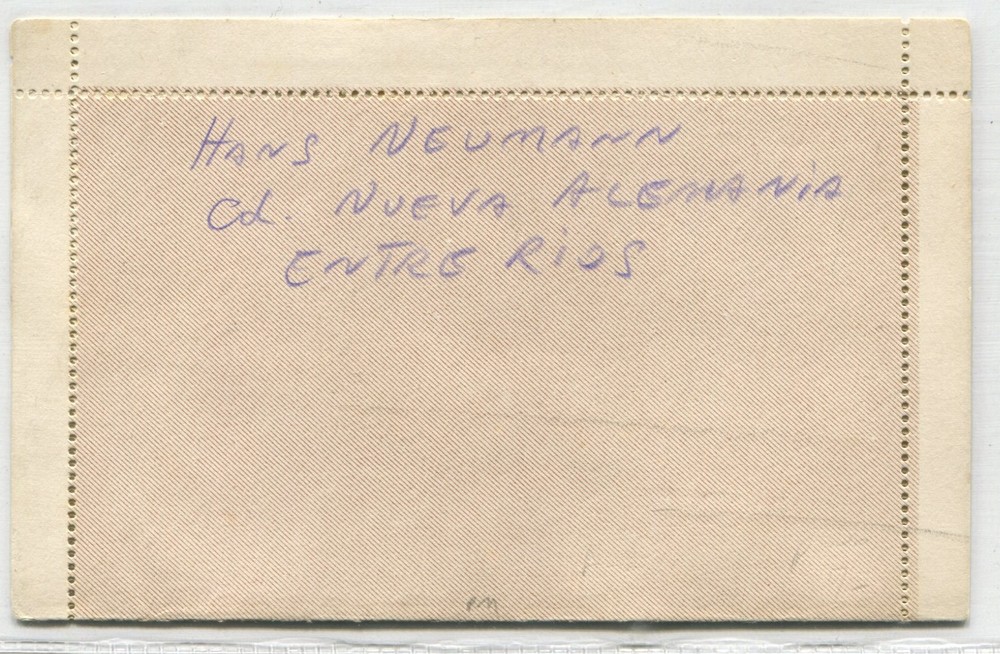 HANS NEUMANN
Cd. NUEVA ALEMANiA
ENTRE RiOS